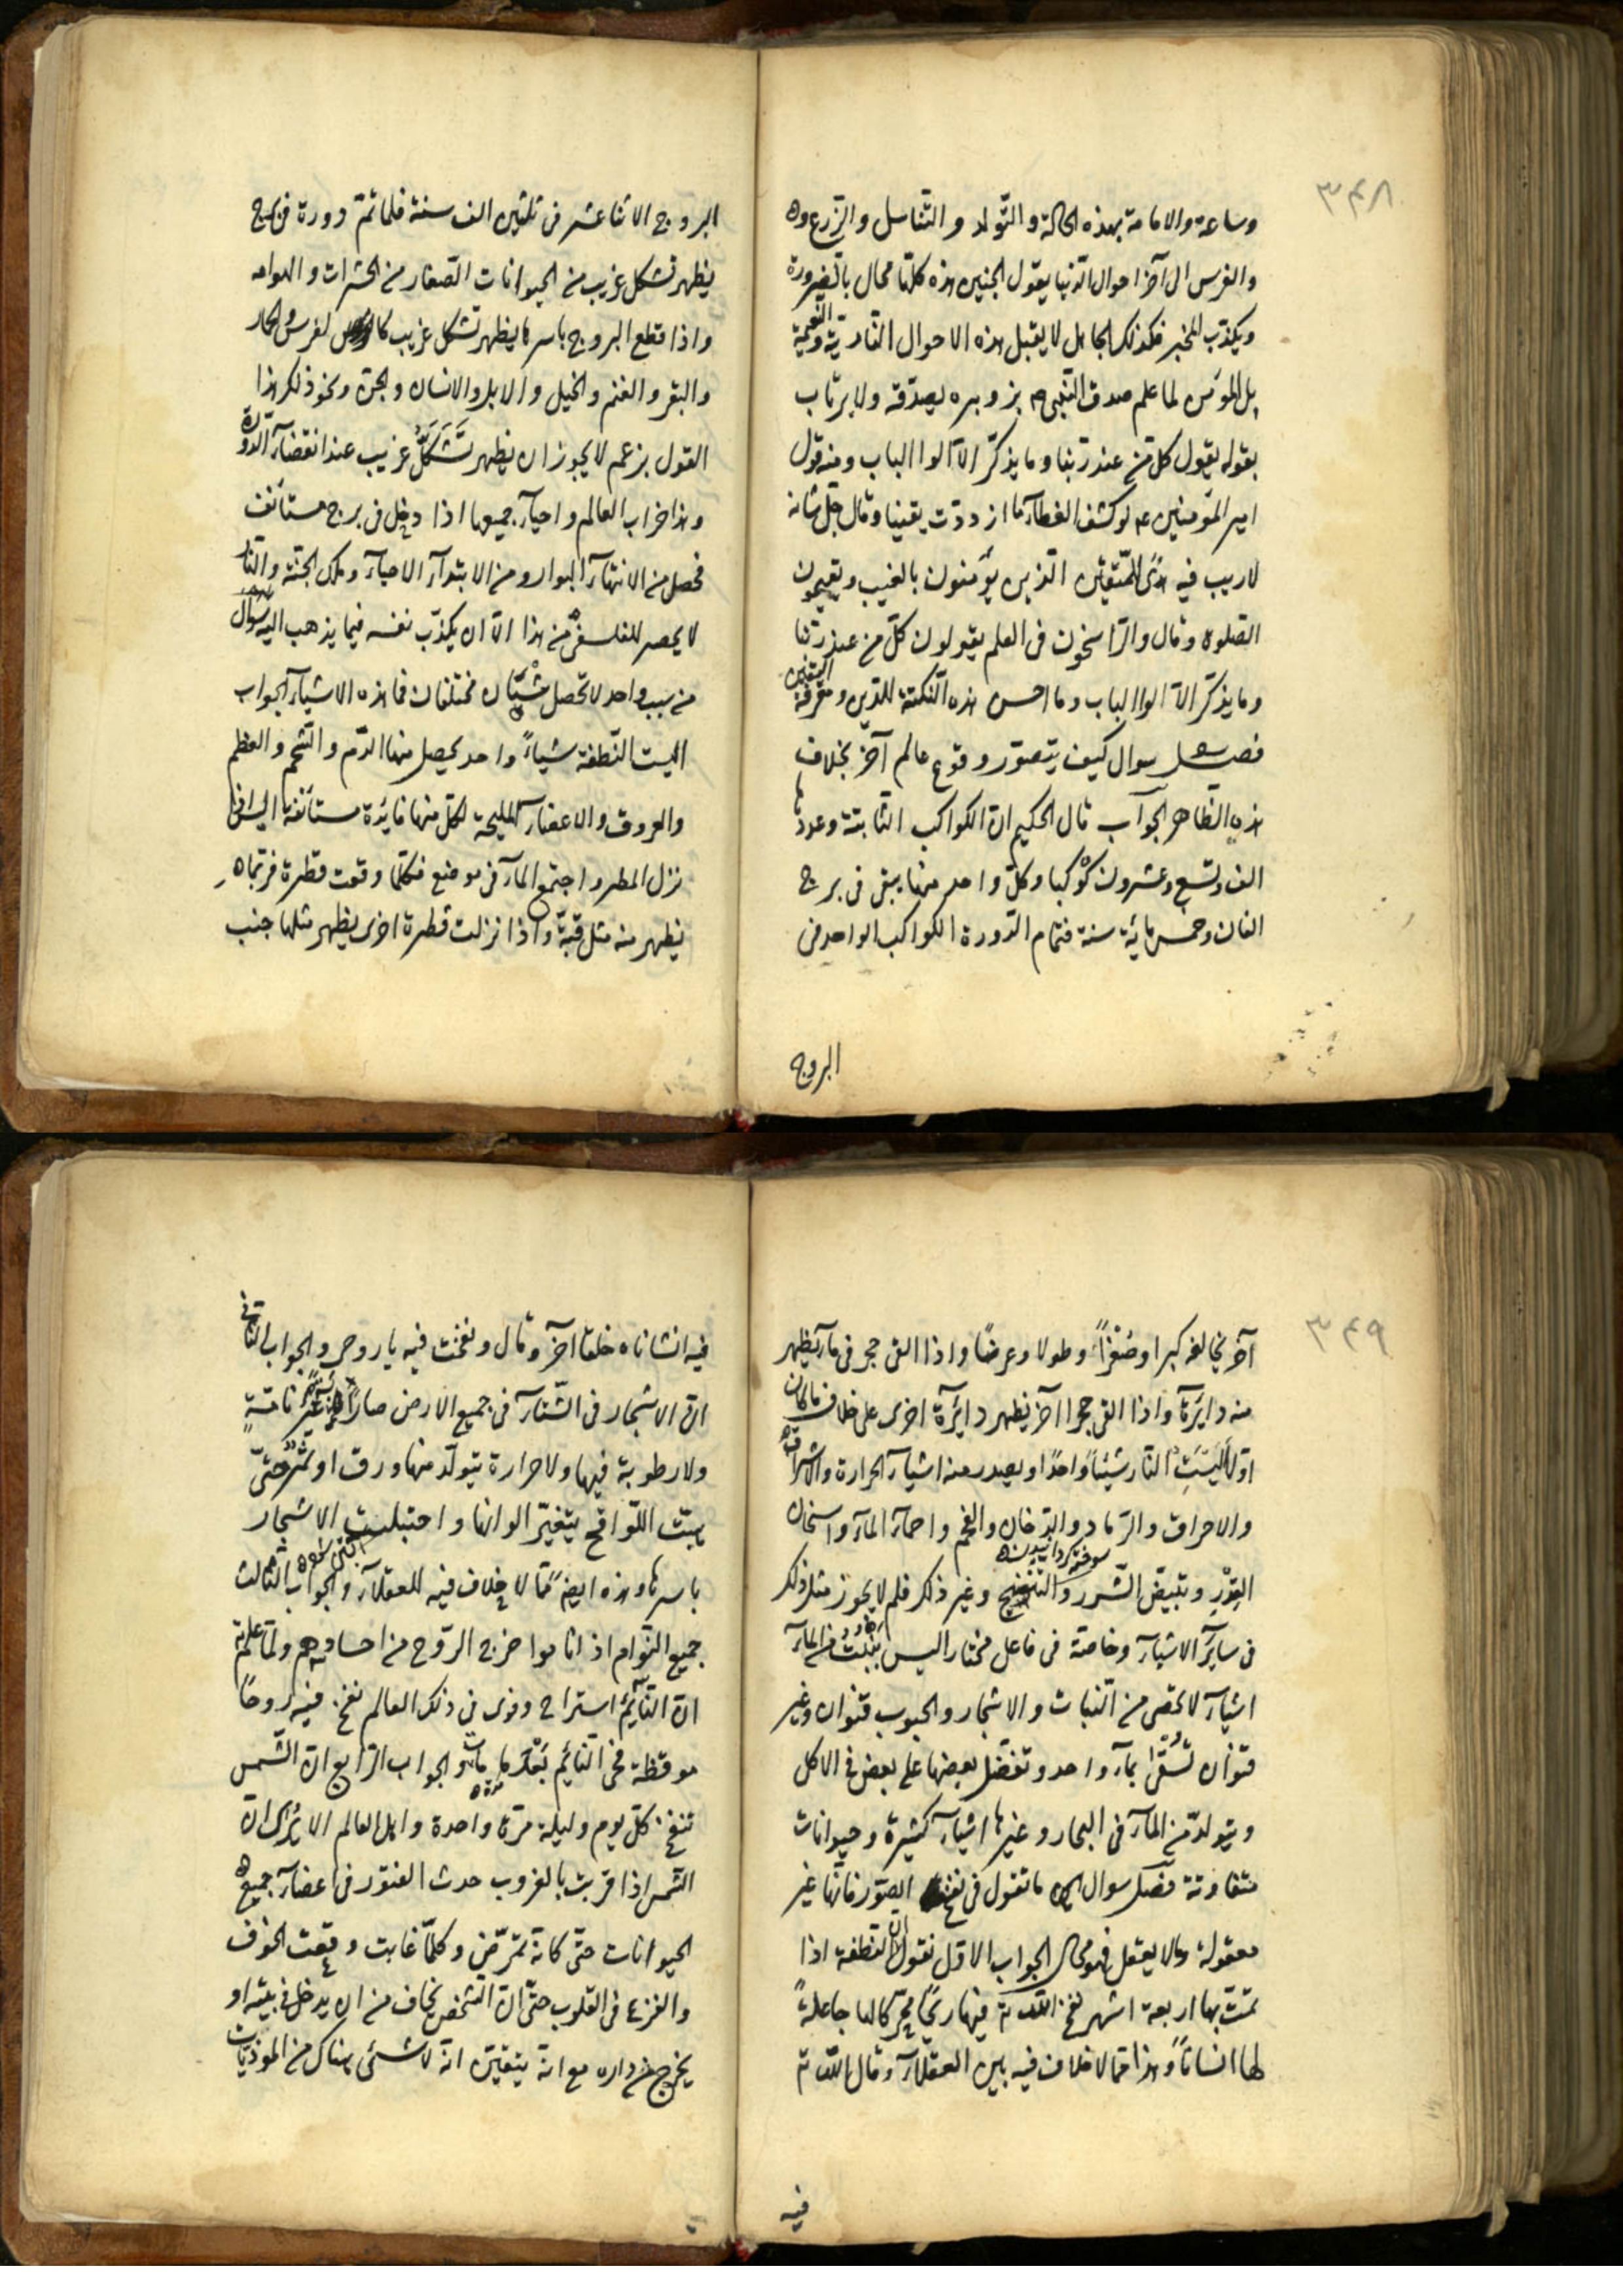 ٣٤٨
وساعة والامامة بهذه الحالة والتولد والتناسل والزرع وه
والغرس الى آخر احوال الدنيا يقول الجنين هذه كلها محال بالضرورة
ويكذب المخبر فكذلك الجاهل لا يقبل هذه الاحوال النادية والنعيمية
بل المؤمن لما علم صدق النبى ص بزوبره يصدقه ولا يرتاب
بقوله يقول كل من عند ربنا وما يذكر الا اولوا الباب ومنه قول
امير المؤمنين ع لو كشف الغطاء ما ازددت يقينا وقال جل شانه
لاريب فيه هدى للمتقين الذين يؤمنون بالغيب ويقيمون
الصلوة وقال والراسخون فى العلم يقولون كل من عند ربنا
وما يذكر الا الوا الباب وما احسن هذه النكتة للدين ومعرفة اليقين
فصل سوال كيف يتصور وقوع عالم آخر بخلاف
هذه الظاهر الجواب قال الحكيم ان الكواكب الثابتة وعددها
الف وتسع وعشرون كوكبا وكل واحد منها يبقى فى برج
الفان وخمس مائة سنة فتمام الدورة الكواكب الواحد فى
البروج
البروج الاثنا عشر فى ثلثين الف سنة فلما تم دورة فى برج
يظهر تشكل غريب من الحيوانات الصغار من الحشرات والهوامه
واذا قطع البروج باسرها يظهر تشكل غريب كالفرس والحمار
والبقر والغنم والخيل والابل والانسان والجن ونحو ذلك هذا
القول بزعم لا يجوز ان يظهر تشكل غريب عند انقضاء الدورة
وهذا خراب العالم واحياء جميعها اذا دخل فى برج مستأنف
فحصل من الانتهاء البوار ومن الابتداء الاحياء وملك الجنة والنار
لا يحصر للفلسفى من هذا الا ان يكذب نفسه فيما يذهب اليه سوال
من سبب واحد لا تحصل شيئان مختلفان فما هذه الاشياء الجواب
اليست النطفة شياءً واحد يحصل منها الدم والشحم والعظم
والعروق والاعضاء المليحة لكل منها فايدة مستأنفة اليس اذا
نزل المطر واجتمع الماء فى موضع فكلما وقعت قطرة فربما ه
يظهر منه مثل قبة واذا نزلت قطرة اخرى يظهر مثلها جنب
٣٤٩
آخر يخالفه كبرا وصغراً وطولا وعرضاً واذا القى حجر فى ماء يظهر
منه دايرة واذا القى حجرا آخر يظهر دايرة اخرى على خلاف ما كان
اولا اليست النار شيئاً واحداً ويصدر منه اشياء الحرارة والاشراقة
والاحراق والرماد والدخان والفحم واحماء الماء واسخان
القدر وتبييض الشرر والتنضيج وغير ذلك فلم لا يجوز مثل ذلك
فى ساير الاشياء وخاصة فى فاعل مختار اليس ينبت من الماء
اشياء لا تحصى من النبات والاشجار والحبوب قنوان وغير
قنوان تسقى بماء واحد وتفضل بعضها على بعض فى الاكل
ويتولد من الماء فى البحار وغيرها اشياء كثيرة وحيوانات
متفاوتة فصل سوال ما تقول فى نفخ الصور فانها غير
معقولة وما لا يعقل فهو محال الجواب الاول نقول ان النطفة اذا
تمت بها اربعة اشهر نفخ الله تع فيها ريحاً محركا لها جاعلةً
لها انساناً وهذا مما لا خلاف فيه بين العقلاء وقال الله تع
فيه
فيه انشاناه خلقا آخر وقال ونفخت فيه ياروحى والجواب الثانى
ان الاشجار فى الشتاء فى جميع الارض صار غير نامية
ولا رطوبة فيها ولا حرارة يتولد منها ورق او ثمر حتى
يبت اللواقح يتغير الوانها واحتبلت الاشجار
باسرها وهذه ايضً مما لا خلاف فيه للعقلاء والجواب الثالث
جميع النوام اذا ناموا خرج الروح من اجسادهم ولما علم
ان النائم استراح وقوى فى ذلك العالم نفخ فيه روحاً
موقظة فحى النائم بعد ما مات والجواب الرابع ان الشمس
تنفخ كل يوم وليلة مرة واحدة واهل العالم الا يرى ان
الشمس اذا قربت بالغروب حدث الفتور فى اعضاء جميع
الحيوانات حتى كانه تمرض وكلما غابت وقعت الخوف
والفزع فى القلوب حتى ان الشخص يخاف من ان يدخل فى بيته او
يخرج من داره مع انه يتيقن انه لا شئ هناك من الموذيات